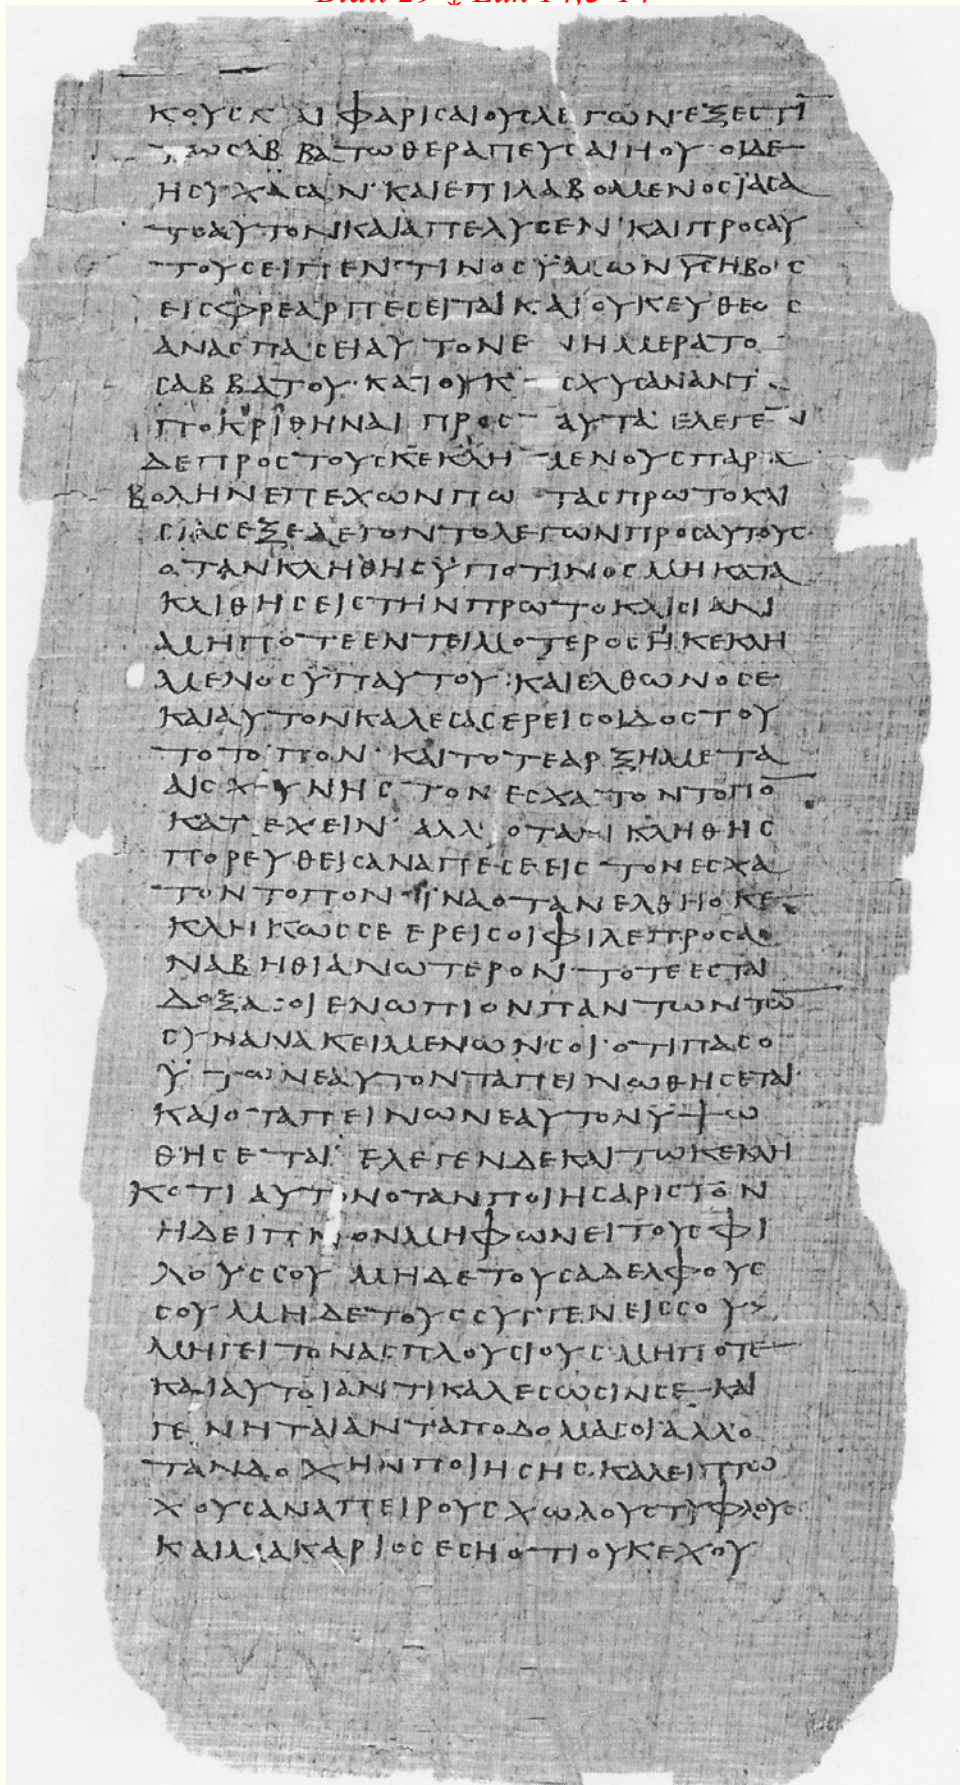 Blatt 29 ⚓ Luk 14,3-14
ΚΟΥϹ ΚΑΙ ΦΑΡΙϹΑΙΟΥϹ ΛΕΓΩΝ· ΕΞΕϹΤΙ̅
ΤΩ ϹΑΒΒΑΤΩ ΘΕΡΑΠΕΥϹΑΙ Η ΟΥ· ΟΙ ΔΕ
ΗϹΥΧΑϹΑΝ· ΚΑΙ ΕΠΙΛΑΒΟΜΕΝΟϹ ΪΑϹΑ
ΤΟ ΑΥΤΟΝ ΚΑΙ ΑΠΕΛΥϹΕΝ· ΚΑΙ ΠΡΟϹ ΑΥ
ΤΟΥϹ ΕΙΠΕΝ· ΤΙΝΟϹ ΫΜΩΝ Υ̅Ϲ̅ Η ΒΟΥϹ
ΕΙϹ ΦΡΕΑΡ ΠΕϹΕΙΤΑΙ ΚΑΙ ΟΥΚ ΕΥΘΕΩϹ
ΑΝΑϹΠΑϹΕΙ ΑΥΤΟΝ ΕΝ ΗΜΕΡΑ ΤΟ
ϹΑΒΒΑΤΟΥ· ΚΑΙ ΟΥΚ ΙϹΧΥϹΑΝ ΑΝΤΑ
ΠΟΚΡΙΘΗΝΑΙ ΠΡΟϹ ΤΑΥΤΑ· ΕΛΕΓΕΝ
ΔΕ ΠΡΟϹ ΤΟΥϹ ΚΕΚΛΗΜΕΝΟΥϹ ΠΑΡΑ
ΒΟΛΗΝ ΕΠΕΧΩΝ ΠΩϹ ΤΑϹ ΠΡΩΤΟΚΛΙ
ϹΙΑϹ ΕΞΕΛΕΓΟΝΤΟ ΛΕΓΩΝ ΠΡΟϹ ΑΥΤΟΥϹ·
ΟΤΑΝ ΚΛΗΘΗϹ ΫΠΟ ΤΙΝΟϹ ΜΗ ΚΑΤΑ
ΚΛΙΘΗϹ ΕΙϹ ΤΗΝ ΠΡΩΤΟΚΛΙϹΙΑΝ
ΜΗΠΟΤΕ ΕΝΤΕΙΜΟΤΕΡΟϹ Η ΚΕΚΛΗ
ΜΕΝΟϹ ΫΠ ΑΥΤΟΥ· ΚΑΙ ΕΛΘΩΝ Ο ϹΕ
ΚΑΙ ΑΥΤΟΝ ΚΑΛΕϹΑϹ ΕΡΕΙ ϹΟΙ ΔΟϹ ΤΟΥ
ΤΟ ΤΟΠΟΝ· ΚΑΙ ΤΟΤΕ ΑΡΞΗ ΜΕΤΑ
ΑΙϹΧΥΝΗϹ ΤΟΝ ΕϹΧΑΤΟΝ ΤΟΠΟ̅
ΚΑΤΕΧΕΙΝ· ΑΛΛ ΟΤΑΝ ΚΛΗΘΗϹ
ΠΟΡΕΥΘΕΙϹ ΑΝΑΠΕϹΕ ΕΙϹ ΤΟΝ ΕϹΧΑ
ΤΟΝ ΤΟΠΟΝ· ΪΝΑ ΟΤΑΝ ΕΛΘΗ Ο ΚΕ
ΚΛΗΚΩϹ ϹΕ ΕΡΕΙ ϹΟΙ ΦΙΛΕ ΠΡΟϹΑ
ΝΑΒΗΘΙ ΑΝΩΤΕΡΟΝ· ΤΟΤΕ ΕϹΤΑΙ
ΔΟΞΑ ϹΟΙ ΕΝΩΠΙΟΝ ΠΑΝΤΩΝ ΤΩ̅
ϹΥΝΑΝΑΚΕΙΜΕΝΩΝ ϹΟΙ· ΟΤΙ ΠΑϹ Ο
ΫΨΩΝ ΕΑΥΤΟΝ ΤΑΠΕΙΝΩΘΗϹΕΤΑΙ·
ΚΑΙ Ο ΤΑΠΕΙΝΩΝ ΕΑΥΤΟΝ ΫΨΩ
ΘΗϹΕΤΑΙ· ΕΛΕΓΕΝ ΔΕ ΚΑΙ ΤΩ ΚΕΚΛΗ
ΚΟΤΙ ΑΥΤΟΝ ΟΤΑΝ ΠΟΙΗϹ ΑΡΙϹΤΟΝ
Η ΔΕΙΠΝΟΝ ΜΗ ΦΩΝΕΙ ΤΟΥϹ ΦΙ
ΛΟΥϹ ϹΟΥ ΜΗΔΕ ΤΟΥϹ ΑΔΕΛΦΟΥϹ
ϹΟΥ ΜΗΔΕ ΤΟΥϹ ϹΥΓΓΕΝΕΙϹ ϹΟΥ>
ΜΗ ΓΕΙΤΟΝΑϹ ΠΛΟΥϹΙΟΥϹ· ΜΗΠΟΤΕ
ΚΑΙ ΑΥΤΟΙ ΑΝΤΙΚΑΛΕϹΩϹΙΝ ϹΕ ΚΑΙ
ΓΕΝΗΤΑΙ ΑΝΤΑΠΟΔΟΜΑ ϹΟΙ ΑΛΛ Ο
ΤΑΝ ΔΟΧΗΝ ΠΟΙΗϹΗϹ· ΚΑΛΕΙ ΠΤΩ
ΧΟΥϹ ΑΝΑΠΕΙΡΟΥϹ ΧΩΛΟΥϹ ΤΥΦΛΟΥϹ
ΚΑΙ ΜΑΚΑΡΙΟϹ ΕϹΗ ΟΤΙ ΟΥΚ ΕΧΟΥ